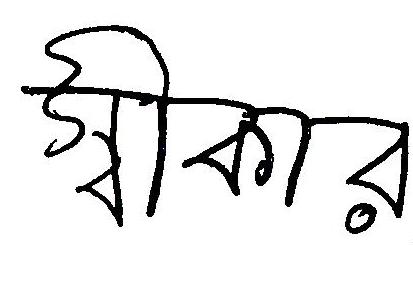 স্বীকার